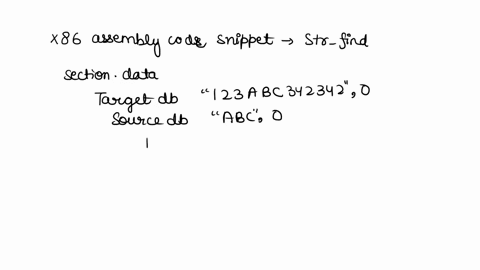 x86 assembly code snippet → Str_find
section.data
Target db "123ABC342342", 0
Source db "ABC", 0
1